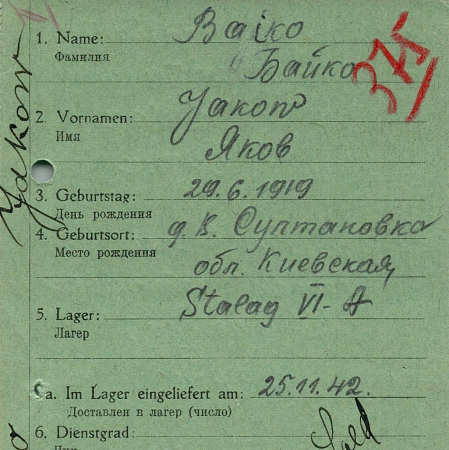 1. Name: Baiko
Фамилия Байко
375
2. Vornamen: Jakow
Имя Яков
3. Geburtstag: 29.6.1919
День рождения
4. Geburtsort: д. В. Султановка
Место рождения обл. Киевская,
5. Lager: Stalag VI-A
Лагер
a. Im Lager eingeliefert am: 25.11.42.
Доставлен в лагер (число)
6. Dienstgrad: Sold
Jakow